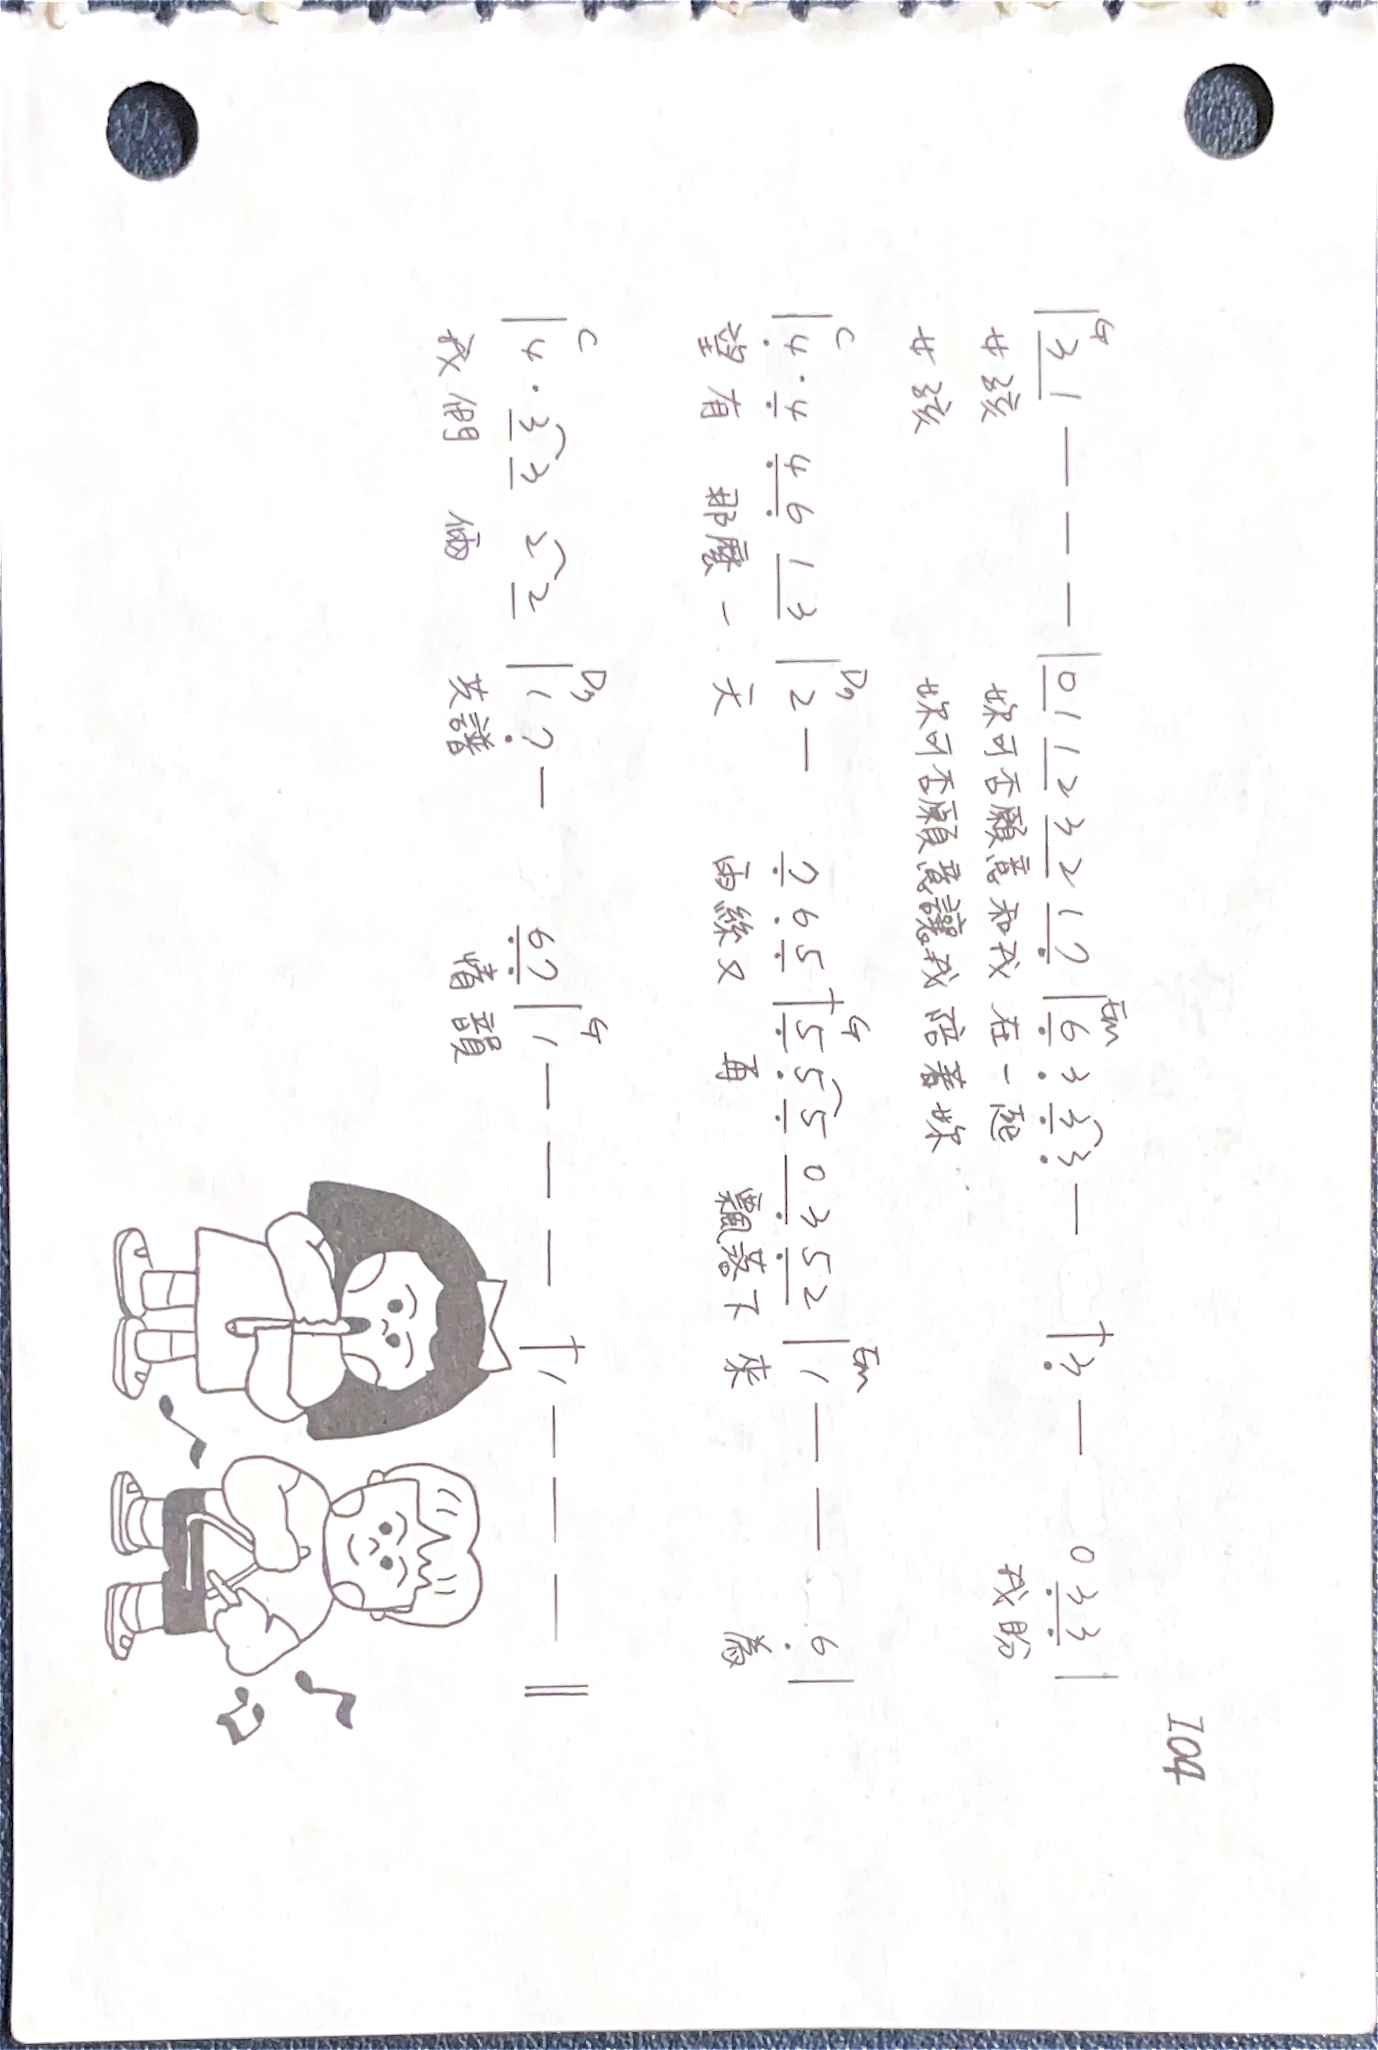 104
G Em
| 3 1 — — — | 0 1 1 2 3 2 1 7 | 6 3 3 3 — | 3 — 0 3 3 |
女孩 妳可否願意和我 在一起 我盼
女孩 妳可否願意讓我 陪著妳
C D7 G Em
| 4 · 4 4 6 1 3 | 2 — 7 6 5 | 5 5 5 0 3 5 2 | 1 — — 6 |
望有 那麼一 天 雨絲又 再 飄落下 來 為
C D7 G
| 4 · 3 3 2 2 | 1 7 — 6 7 | 1 — — — | 1 — — — ||
我們 倆 共譜 情韻